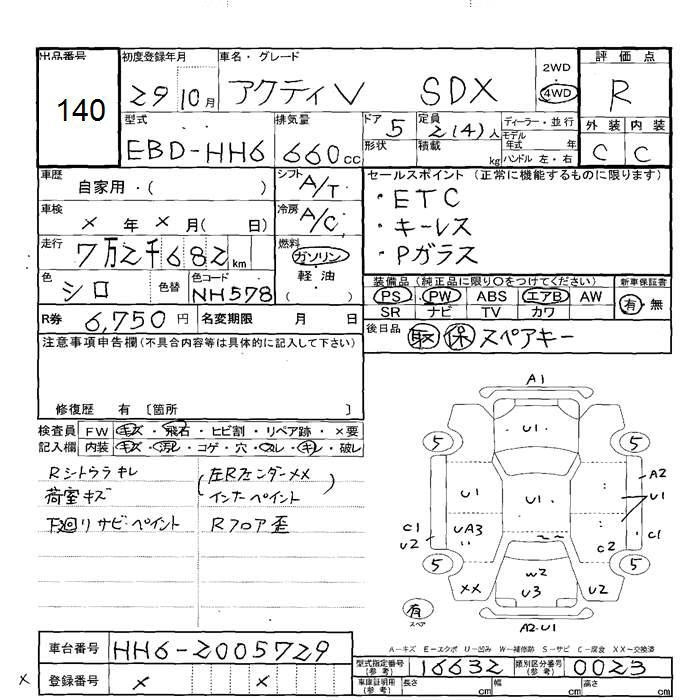 出品番号 初度登録年月 車名・グレード 評価点
140 29 10月 アクティV SDX 2WD 4WD R
型式 排気量 ドア 5 定員 2(4)人 ディーラー・並行 外装 内装
EBD-HH6 660cc 形状 積載 kg モデル年式 年 ハンドル 左・右 C C
車歴 自家用・( ) シフト A/T セールスポイント (正常に機能するものに限ります)
・ETC
車検 × 年 × 月( 日) 冷房 A/C ・キーレス
走行 7万2千682km 燃料 ガソリン 軽・油 ( ) ・Pガラス
色 シロ 色替 色コード NH578 装備品 (純正品に限り○をつけてください) 新車保証書
PS PW ABS エアB AW 有・無
SR ナビ TV カワ
R券 6,750円 名変期限 月 日 後日品 取 保 スペアキー
注意事項申告欄(不具合内容等は具体的に記入して下さい)
修復歴 有 [箇所 ]
検査員 FW キズ・飛石・ヒビ割・リペア跡・×要
記入欄 内装 キズ・汚レ・コゲ・穴・スレ・キレ・破レ
Rシトウラキレ (左Rフェンダーメメ
荷室キズ インナーペイント)
下廻りサビペイント Rフロア歪
A1
5 U1 5
A2
U1 U1 U1
C1 U2 UA3 C2 C1
5 5
XX W2 U3 U2
有 スペア
A2・U1
A-キズ E-エクボ U-凹み W-補修跡 S-サビ C-腐食 XX-交換済
車台番号 HH6-2005729 型式指定番号(参考) 16632 類別区分番号(参考) 0023
× 登録番号 × × 車庫証明用(参考) 長さ cm 幅 cm 高さ cm